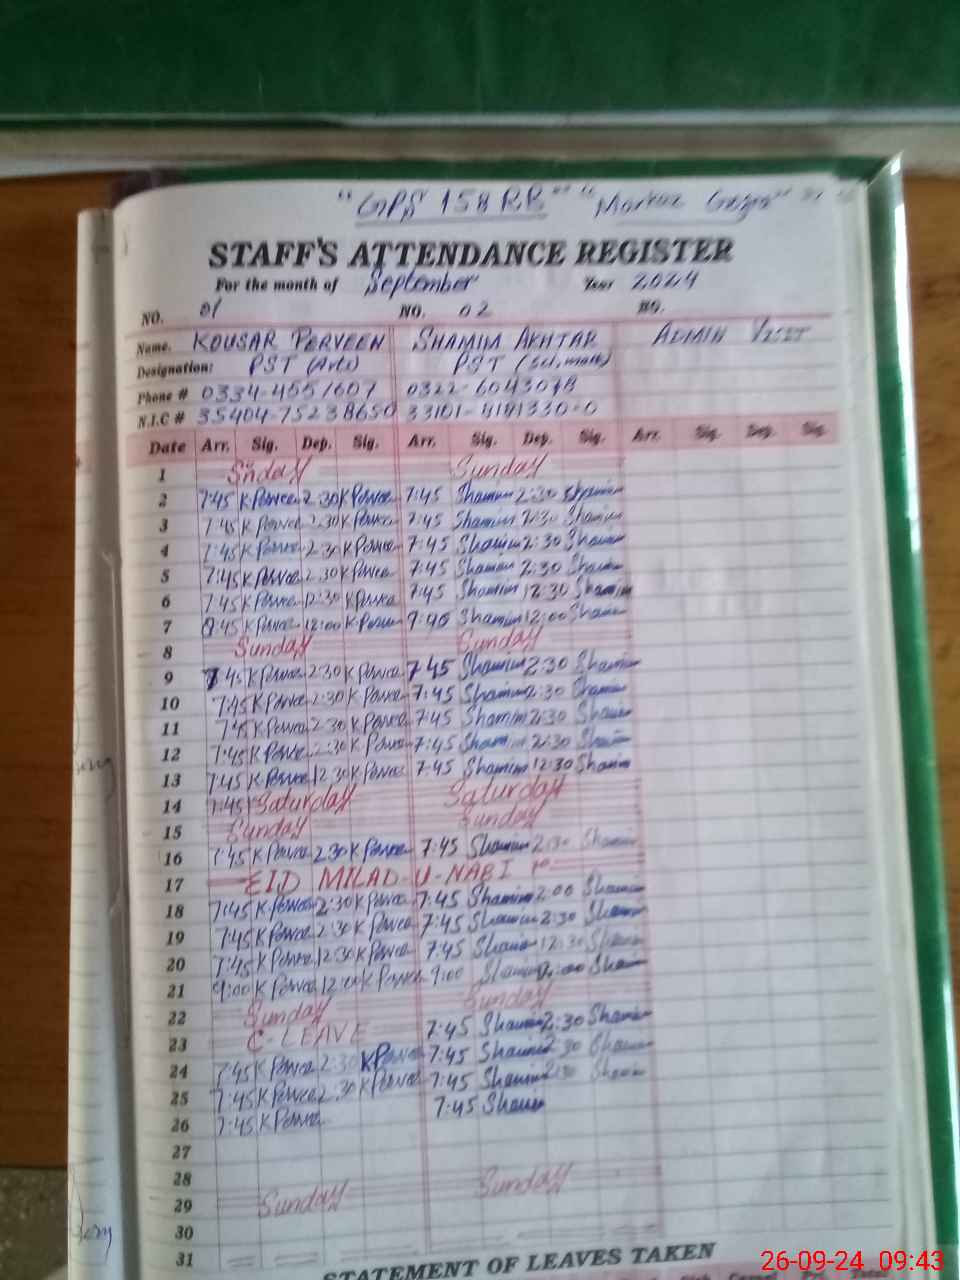 "GPS 158 RB" "Markaz
STAFF'S ATTENDANCE REGISTER
For the month of September Year 2024
NO. 01 NO. 02 NO.
Name. KOUSAR PERVEEN SHAMIM AKHTAR ADMIN VISIT
Designation: PST (Arts) PST (Sci, math)
Phone #
N.I.C #
Date Arr. Sig. Dep. Sig. Arr. Sig. Dep. Sig. Arr. Sig. Dep. Sig.
1 Sunday Sunday
2 7:45 K Pervee 2:30 K Pervee 7:45 Shamim 2:30 Shamim
3 7:45 K Pervee 2:30 K Pervee 7:45 Shamim 2:30 Shamim
4 7:45 K Pervee 2:30 K Pervee 7:45 Shamim 2:30 Shamim
5 7:45 K Pervee 2:30 K Pervee 7:45 Shamim 2:30 Shamim
6 7:45 K Pervee 12:30 K Pervee 7:45 Shamim 12:30 Shamim
7 K Pervee 12:00 K Pervee Shamim 12:00 Shamim
8 Sunday Sunday
9 7:45 K Pervee 2:30 K Pervee 7:45 Shamim 2:30 Shamim
10 7:45 K Pervee 2:30 K Pervee 7:45 Shamim 2:30 Shamim
11 7:45 K Pervee 2:30 K Pervee 7:45 Shamim 2:30 Shamim
12 7:45 K Pervee 2:30 K Pervee 7:45 Shamim 2:30 Shamim
13 7:45 K Pervee 12:30 K Pervee 7:45 Shamim 12:30 Shamim
14 7:45 Saturday Saturday
15 Sunday Sunday
16 7:45 K Pervee 2:30 K Pervee 7:45 Shamim 2:30 Shamim
17 EID MILAD-U-NABI
18 7:45 K Pervee 2:30 K Pervee 7:45 Shamim 2:00 Shamim
19 7:45 K Pervee 2:30 K Pervee 7:45 Shamim 2:30 Shamim
20 7:45 K Pervee 12:30 K Pervee 7:45 Shamim 12:30 Shamim
21 9:00 K Pervee 12:00 K Pervee 9:00 Shamim Shamim
22 Sunday Sunday
23 C-LEAVE 7:45 Shamim 2:30 Shamim
24 7:45 K Pervee 2:30 K Pervee 7:45 Shamim 2:30 Shamim
25 7:45 K Pervee 2:30 K Pervee 7:45 Shamim 2:30 Shamim
26 7:45 K Pervee 7:45 Shamim
27
28
29 Sunday Sunday
30
31
STATEMENT OF LEAVES TAKEN
26-09-24 09:43